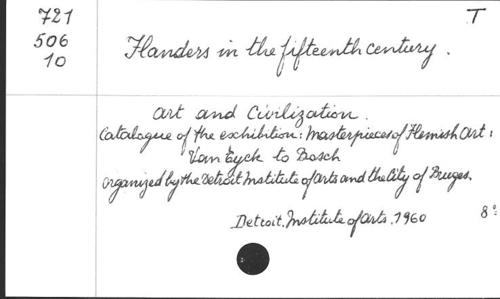 721
506
10
T
Flanders in the fifteenth century.
Art and Civilization.
Catalogue of the exhibition: Masterpieces of Flemish Art:
Van Eyck to Bosch
organized by the Detroit Institute of arts and the City of Bruges.
Detroit. Institute of arts. 1960
8º